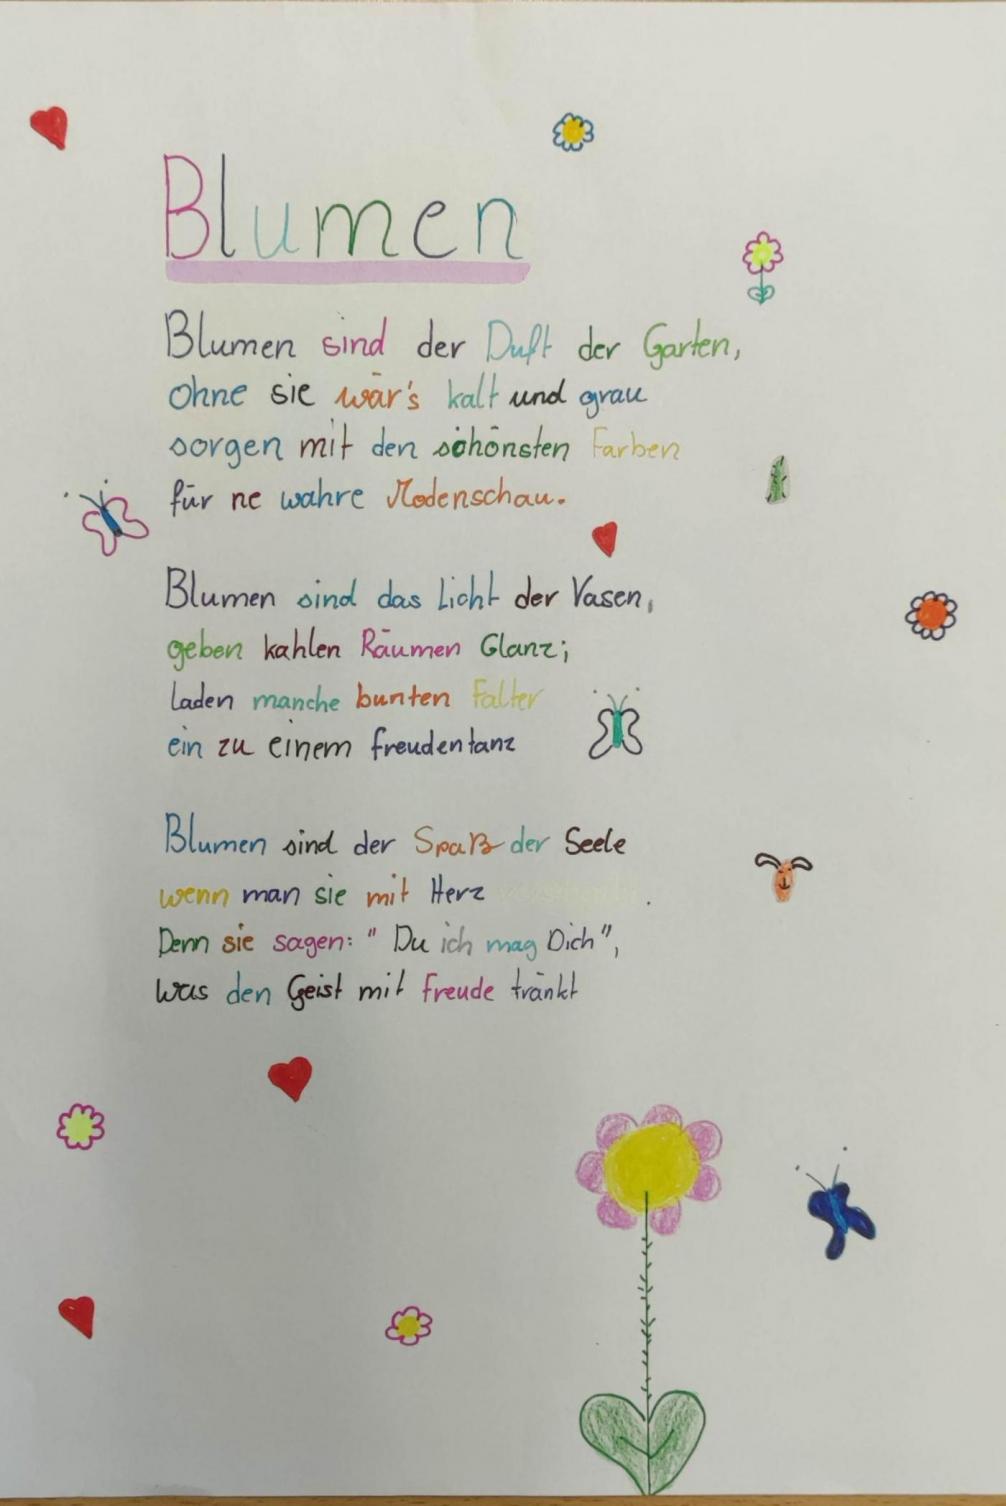 Blumen
Blumen sind der Duft der Garten,
ohne sie wär's kalt und grau
sorgen mit den schönsten Farben
für ne wahre Modenschau.
Blumen sind das Licht der Vasen,
geben kahlen Räumen Glanz;
laden manche bunten Falter
ein zu einem freudentanz
Blumen sind der Spaß der Seele
wenn man sie mit Herz .
Denn sie sagen: " Du ich mag Dich",
was den Geist mit freude tränkt